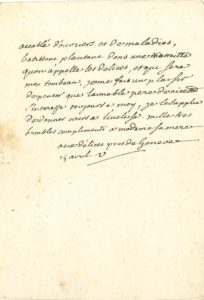 accablé d'hivers et de maladies,
batissant plantant dans une retraitte
qu'on appelle les délices, et qui sera
mon tombeau, je me fais un plaisir
de penser que l'aimable pere de
s'interesse toujours a moy, je le supplie
de donner mille et
humbles compliments a madame sa mere
aux délices pres de Geneve
15 avril V